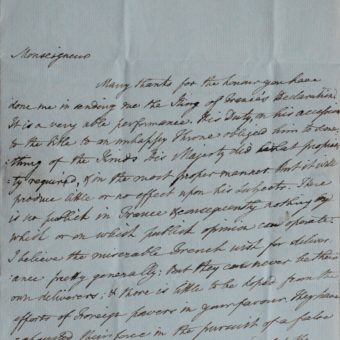 Monseigneur
Many thanks for the honour you have
done me in sending me the King of France's Declaration
It is a very able performance. His Duty, on his accession
to the title to an unhappy Throne obliged him to some
thing of the kind. His Majesty did what proprie
ty required, & in the most proper manner but it will
produce little or no effect upon his subjects. There
is no publick in France & consequently nothing by
which or on which publick opinion can operate.
I believe the miserable French wish for deliver
ance pretty generally; But they can never be their
own deliverers; & there is little to be hoped from the
efforts of Foreign powers in your favour. They have
in the pursuit of a false